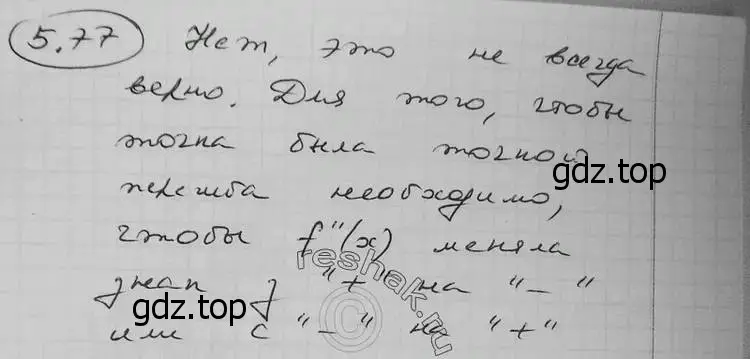 5.77 Нет, это не всегда
верно. Для того, чтобы
точка была точкой
перегиба необходимо,
чтобы f"(x) меняла
знак с "+" на "–"
или с "–" на "+"
gdz.top
gdz.top
gdz.top
reshak.ru
©